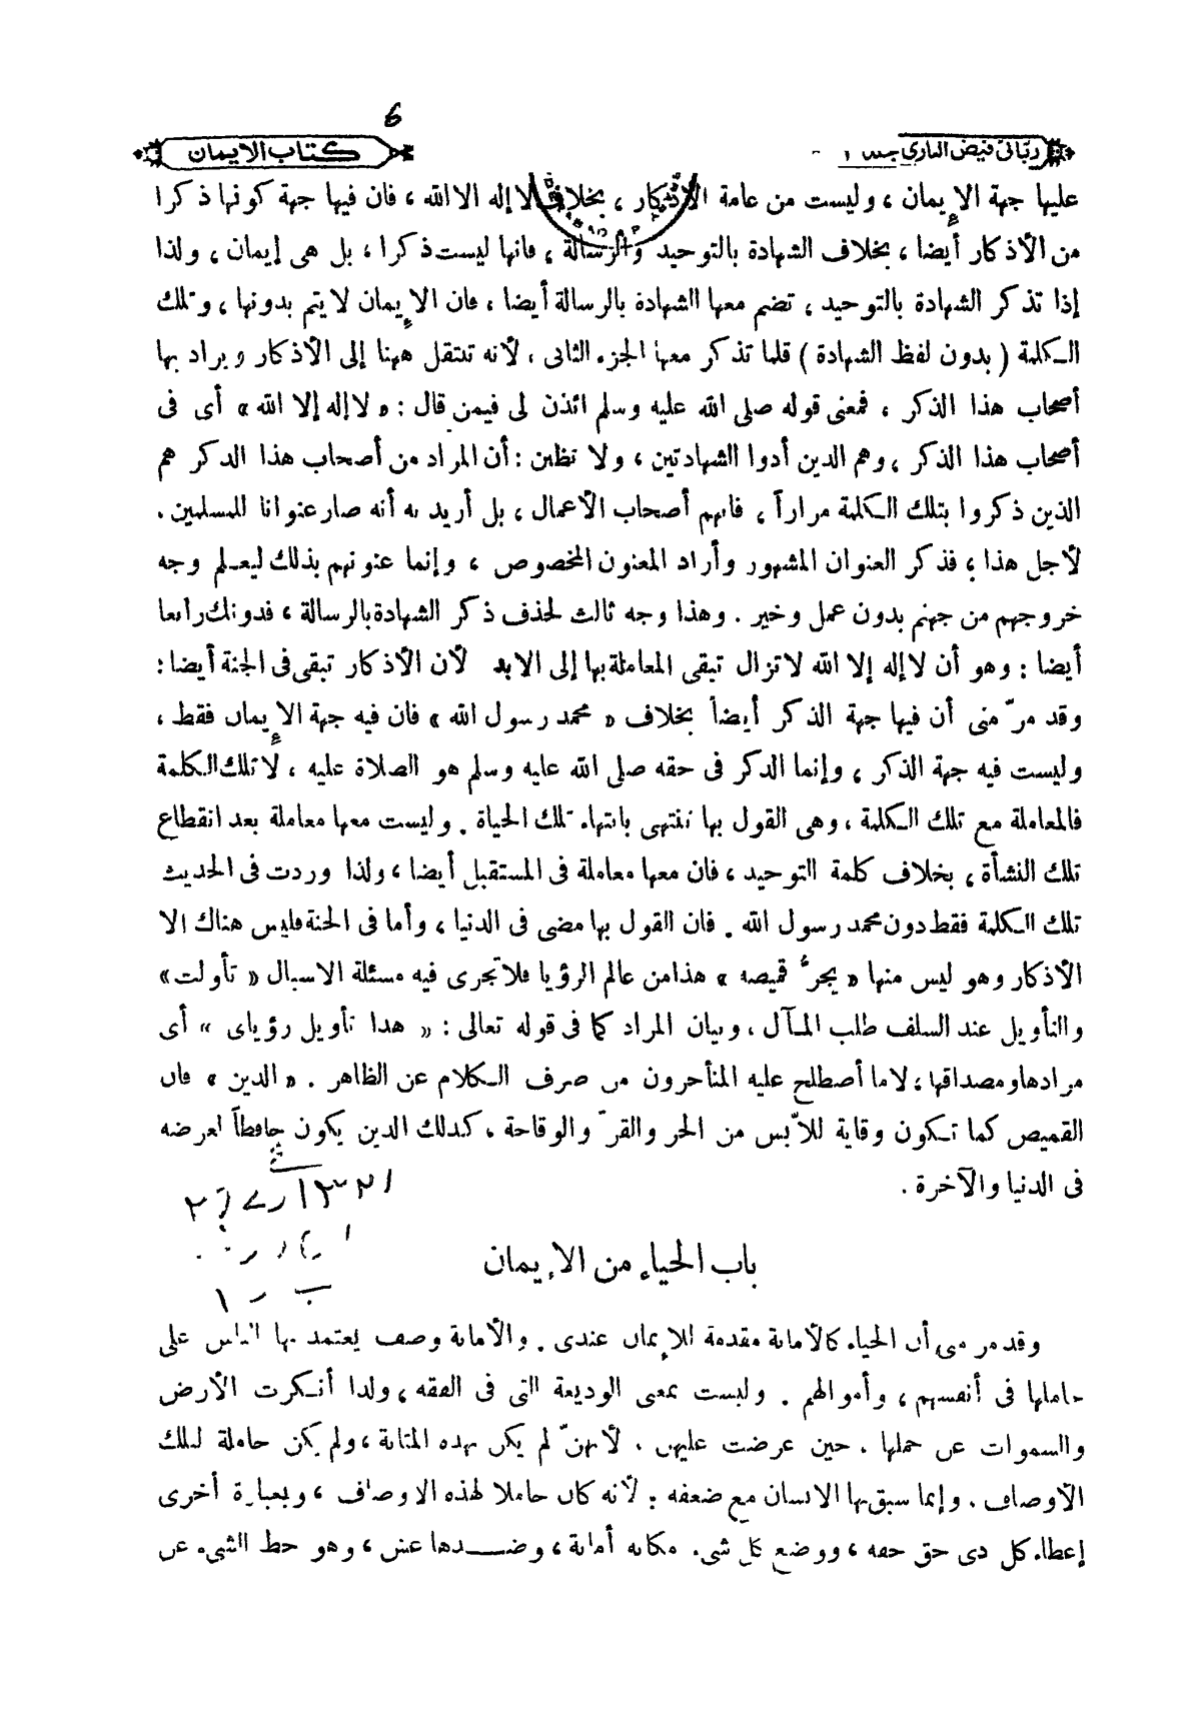 6
كتاب الإيمان
ربانى فيض البارى جلد ١
عليها جهة الإيمان ، وليست من عامة الأذكار ، بخلاف لا إله الا الله ، فان فيها جهة كونها ذكرا
من الأذكار أيضا ، بخلاف الشهادة بالتوحيد والرسالة ، فانها ليست ذكرا ، بل هى إيمان ، ولذا
إذا تذكر الشهادة بالتوحيد ، تضم معها الشهادة بالرسالة أيضا ، فان الإيمان لا يتم بدونها ، وتلك
الكلمة ( بدون لفظ الشهادة ) قلما تذكر معها الجزء الثانى ، لأنه تنتقل ههنا إلى الأذكار ويراد بها
أصحاب هذا الذكر ، فمعنى قوله صلى الله عليه وسلم ائذن لى فيمن قال : « لا إله إلا الله » أى فى
أصحاب هذا الذكر ، وهم الذين أدوا الشهادتين ، ولا تظنن : أن المراد من أصحاب هذا الذكر هم
الذين ذكروا بتلك الكلمة مراراً ، فانهم أصحاب الأعمال ، بل أريد به أنه صار عنوانا للمسلمين .
لأجل هذا ؛ فذكر العنوان المشهور وأراد المعنون المخصوص ، وإنما عنونهم بذلك ليعلم وجه
خروجهم من جهنم بدون عمل وخير . وهذا وجه ثالث لحذف ذكر الشهادة بالرسالة ، فدونك رابعا
أيضا : وهو أن لا إله إلا الله لا تزال تبقى المعاملة بها إلى الابد لأن الأذكار تبقى فى الجنة أيضا :
وقد مرّ منى أن فيها جهة الذكر أيضاً بخلاف « محمد رسول الله » فان فيه جهة الإيمان فقط ،
وليست فيه جهة الذكر ، وإنما الذكر فى حقه صلى الله عليه وسلم هو الصلاة عليه ، لا تلك الكلمة
فالمعاملة مع تلك الكلمة ، وهى القول بها تنتهى بانتهاء تلك الحياة . وليست معها معاملة بعد انقطاع
تلك النشأة ، بخلاف كلمة التوحيد ، فان معها معاملة فى المستقبل أيضا ، ولذا وردت فى الحديث
تلك الكلمة فقط دون محمد رسول الله . فان القول بها مضى فى الدنيا ، وأما فى الجنة فليس هناك الا
الأذكار وهو ليس منها « يجرُّ قميصه » هذا من عالم الرؤيا فلا تجرى فيه مسئلة الاسبال « تأولت »
والتأويل عند السلف طلب المآل ، وبيان المراد كما فى قوله تعالى : « هذا تأويل رؤياى » أى
مرادها ومصداقها ؛ لا ما أصطلح عليه المتأخرون من صرف الكلام عن الظاهر . « الدين » فان
القميص كما تكون وقاية للاّبس من الحر والقرّ والوقاحة ، كذلك الدين يكون حافظاً لعرضه
فى الدنيا والآخرة .
باب الحياء من الإيمان
وقد مر منى أن الحياء كالأمانة مقدمة للإيمان عندى . والأمانة وصف يعتمد بها الناس على
حاملها فى أنفسهم ، وأموالهم . وليست بمعنى الوديعة التى فى الفقه ، ولذا أنكرت الأرض
والسموات عن حملها ، حين عرضت عليهن . لأنهنّ لم يكن بهذه المثابة ، ولم يكن حاملة لتلك
الأوصاف . وإنما سبق بها الانسان مع ضعفه : لأنه كان حاملا لهذه الاوصاف ، وبعبارة أخرى
إعطاء كل ذى حق حقه ، ووضع كل شىء مكانه أمانة ، وضدها غش ، وهو حط الشىء عن